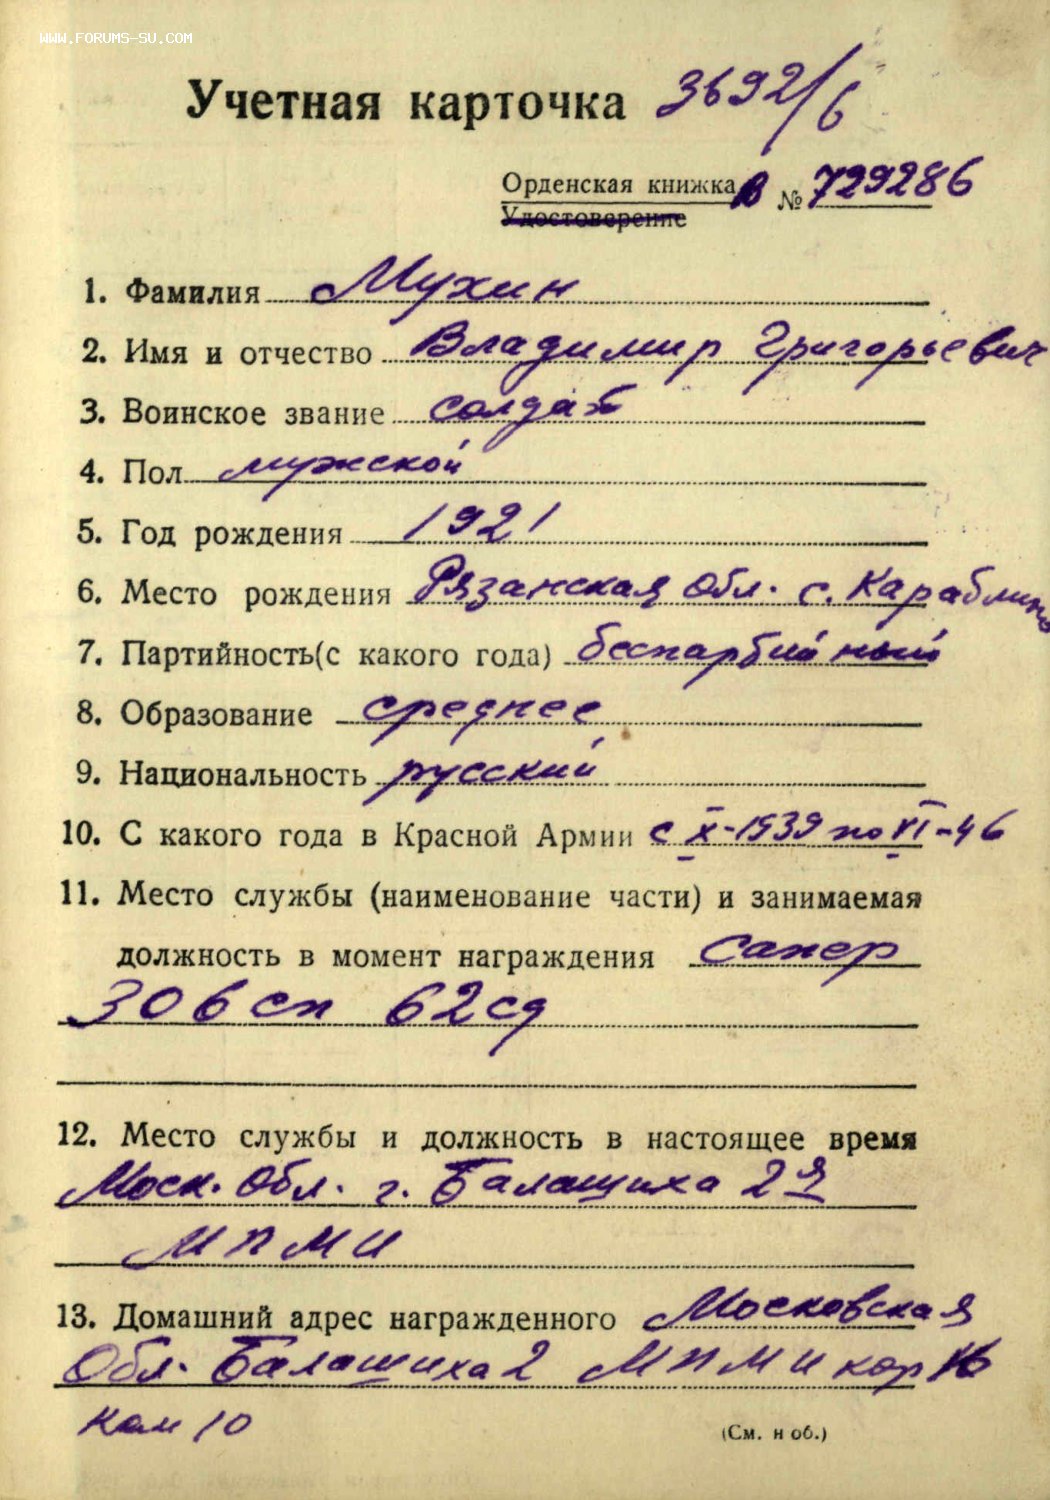 WWW.FORUMS-SU.COM
Учетная карточка 3692/6
Орденская книжка В № 729286
Удостоверение
1. Фамилия Мухин
2. Имя и отчество Владимир Григорьевич
3. Воинское звание солдат
4. Пол мужской
5. Год рождения 1921
6. Место рождения Рязанская Обл. с. Караблино
7. Партийность(с какого года) беспартийный
8. Образование среднее
9. Национальность русский
10. С какого года в Красной Армии с X-1939 по VI-46
11. Место службы (наименование части) и занимаемая
должность в момент награждения Сапер
306 сп 62 сд
12. Место службы и должность в настоящее время
Моск. Обл. г. Балашиха 2я
МПМИ
13. Домашний адрес награжденного Московская
Обл. Балашиха 2 МПМИ кор 16
Ком 10
(См. н об.)